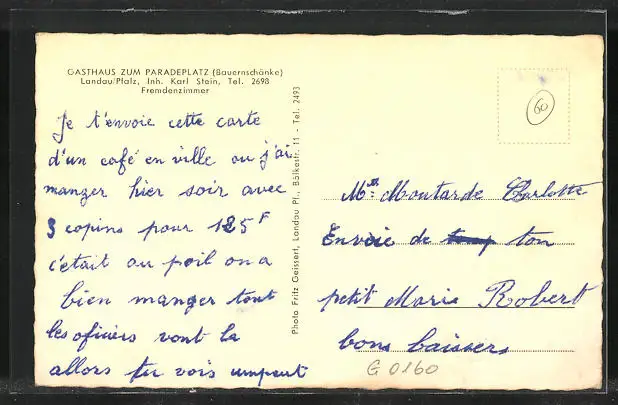 GASTHAUS ZUM PARADEPLATZ (Bauernschänke)
Landau/Pfalz, Inh. Karl Stein, Tel. 2698
Fremdenzimmer
Je t'envoie cette carte
d'un café en ville ou j'ai
manger hier soir avec
3 copins pour 125 F
c'était au poil on a
bien manger tout
les oficiers vont la
allors tu vois umpeut
Photo Fritz Geissert, Landau Pf., Bölkestr. 11 - Tel. 2493
60
Mlle Moutarde Charlotte
Envoie de ton
petit Marie Robert
bons baisers
G 0160